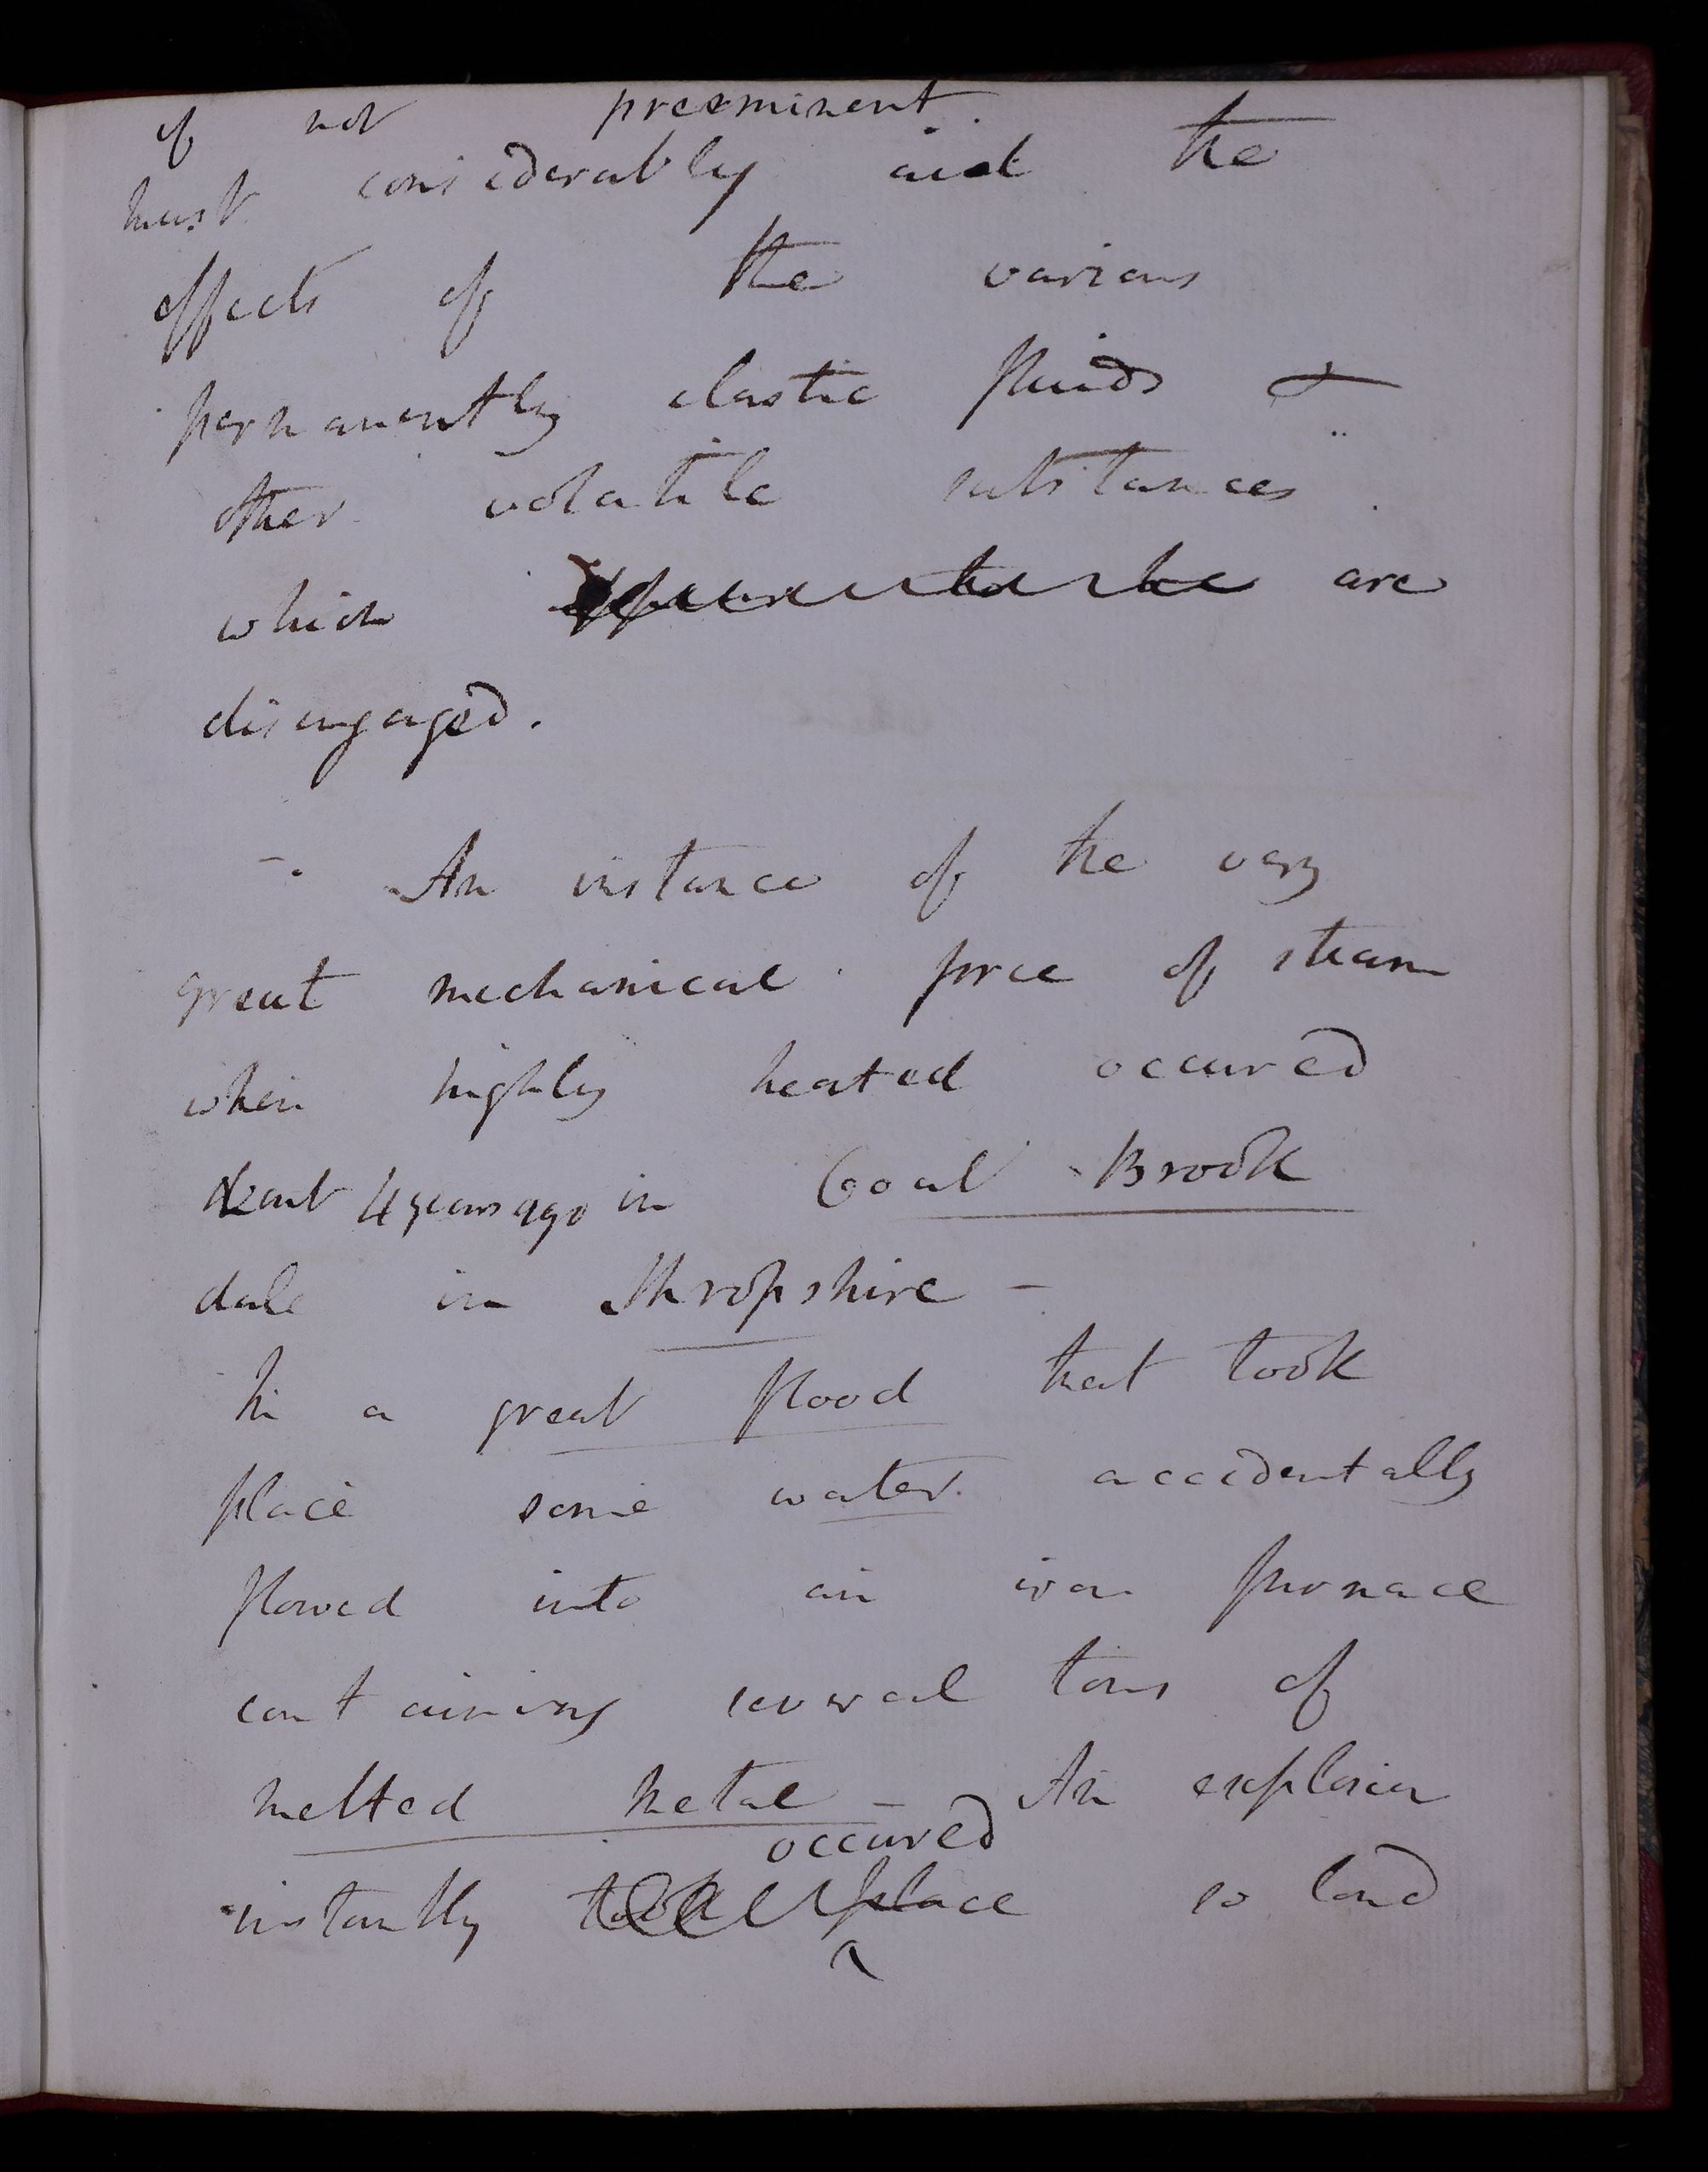 if not preeminent
must considerably aid the
effects of the various
permanently elastic fluids &
other volatile substances
which are
disengaged.
-. An instance of the very
great mechanical force of steam
when highly heated occured
about 4 years ago in Coal Brook
dale in Shropshire -
In a great flood that took
place some water accidentally
flowed into an iron furnace
containing several tons of
melted metal - An explosion
occured
instantly took place so loud